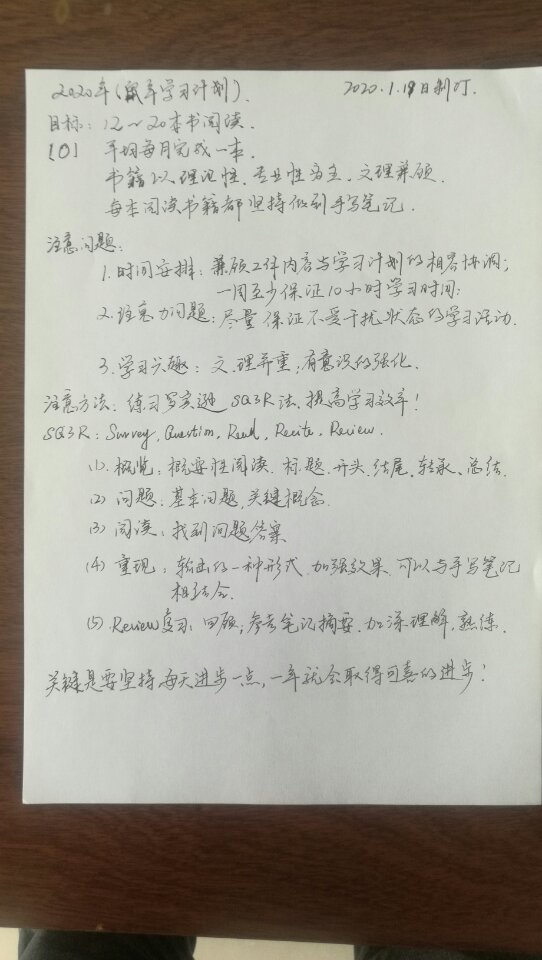 2020年(鼠年学习计划). 2020.1.19日制订.
目标: 12~20本书阅读.
[0] 平均每月完成一本.
书籍以理论性、专业性为主, 文理兼顾.
每本阅读书籍都坚持做到手写笔记.
注意问题:
1. 时间安排: 兼顾工作内容与学习计划的相容协调;
一周至少保证10小时学习时间;
2. 注意力问题: 尽量保证不受干扰状态的学习活动.
3. 学习兴趣: 文、理并重; 有意识的强化.
注意方法: 练习写实践 SQ3R法, 提高学习效率!
SQ3R: Survey, Question, Read, Recite, Review.
(1). 概览: 概要性阅读. 标题、开头、结尾、转承、总结.
(2) 问题: 基本问题, 关键概念.
(3) 阅读: 找到问题答案
(4) 重现: 输出的一种形式, 加强效果. 可以与手写笔记
相结合.
(5) Review复习: 回顾; 参考笔记摘要. 加深理解, 熟练.
关键是要坚持, 每天进步一点, 一年就会取得可喜的进步!